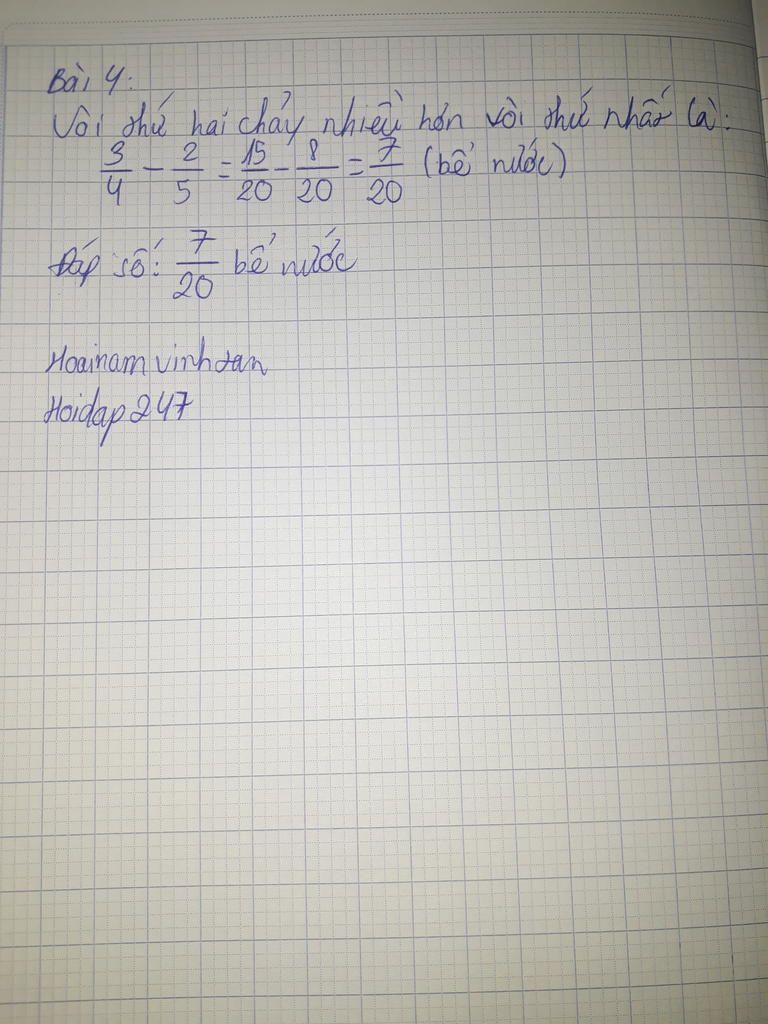 Bài 4:
Vòi thứ hai chảy nhiều hơn vòi thứ nhất là:
3/4 - 2/5 = 15/20 - 8/20 = 7/20 (bể nước)
Đáp số: 7/20 bể nước
Hoainam vinhtan
Hoidap 247